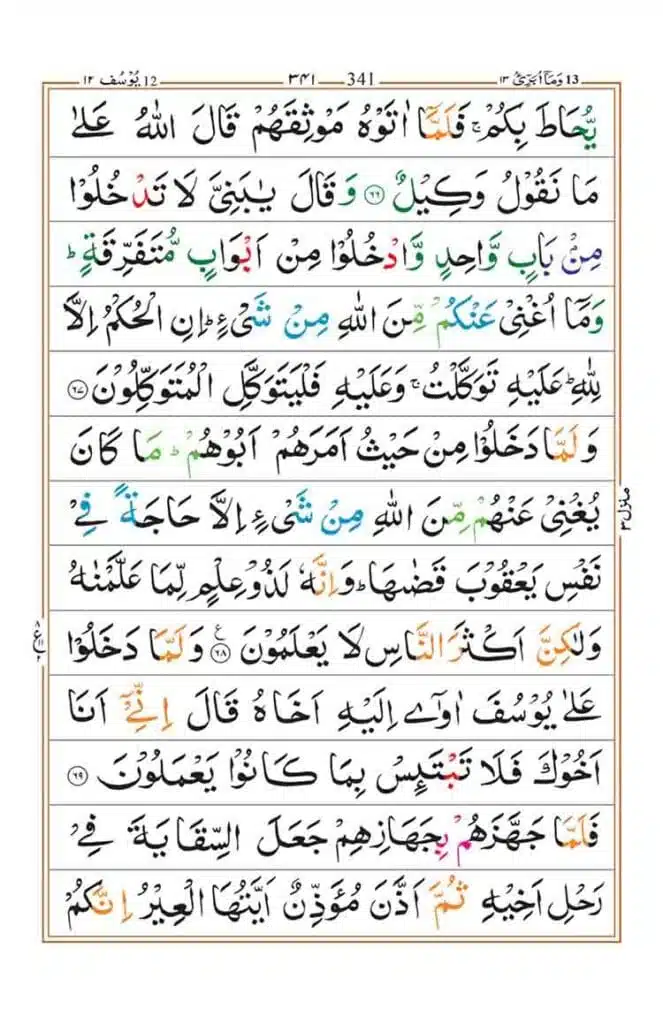 ١٣ وَمَاۤ اُبَرِّئُ 13 341 ٣٤١ 12 يُوْسُف ١٢
يُّحَاطَ بِكُمْ ۚ فَلَمَّاۤ اٰتَوْهُ مَوْثِقَهُمْ قَالَ اللّٰهُ عَلٰى
مَا نَقُوْلُ وَكِيْلٌ ﴿٦٦﴾ وَقَالَ يٰبَنِىَّ لَا تَدْخُلُوْا
مِنْۢ بَابٍ وَّاحِدٍ وَّادْخُلُوْا مِنْ اَبْوَابٍ مُّتَفَرِّقَةٍ ؕ
وَمَاۤ اُغْنِىْ عَنْكُمْ مِّنَ اللّٰهِ مِنْ شَىْءٍ ؕ اِنِ الْحُكْمُ اِلَّا
لِلّٰهِ ؕ عَلَيْهِ تَوَكَّلْتُ ۚ وَعَلَيْهِ فَلْيَتَوَكَّلِ الْمُتَوَكِّلُوْنَ ﴿٦٧﴾
وَلَمَّا دَخَلُوْا مِنْ حَيْثُ اَمَرَهُمْ اَبُوْهُمْ ؕ مَا كَانَ
يُغْنِىْ عَنْهُمْ مِّنَ اللّٰهِ مِنْ شَىْءٍ اِلَّا حَاجَةً فِىْ
نَفْسِ يَعْقُوْبَ قَضٰٮهَا ؕ وَاِنَّهٗ لَذُوْ عِلْمٍ لِّمَا عَلَّمْنٰهُ
وَلٰكِنَّ اَكْثَرَ النَّاسِ لَا يَعْلَمُوْنَ ﴿٦٨﴾ ع وَلَمَّا دَخَلُوْا
عَلٰى يُوْسُفَ اٰوٰٓى اِلَيْهِ اَخَاهُ قَالَ اِنِّىْۤ اَنَا
اَخُوْكَ فَلَا تَبْتَئِسْ بِمَا كَانُوْا يَعْمَلُوْنَ ﴿٦٩﴾
فَلَمَّا جَهَّزَهُمْ بِجَهَازِهِمْ جَعَلَ السِّقَايَةَ فِىْ
رَحْلِ اَخِيْهِ ثُمَّ اَذَّنَ مُؤَذِّنٌ اَيَّتُهَا الْعِيْرُ اِنَّكُمْ
منزل ٣